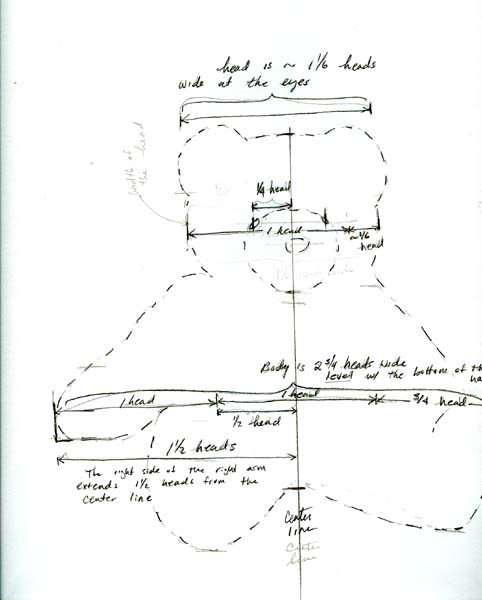 head is ~ 1 1/6 heads
wide at the eyes
width of
the head
1/4 head
1 head
~1/6
head
Body is 2 3/4 heads wide
level w/ the bottom of th
1 head
1 head
3/4 head
1/2 head
1 1/2 heads
The right side of the right arm
extends 1 1/2 heads from the
center line
Center
line
Center
line